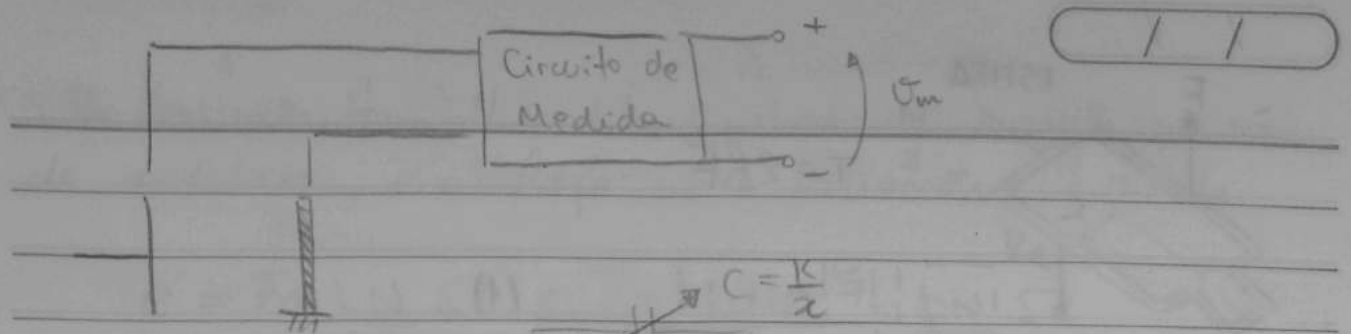 Circuito de
Medida
+
Vm
-
/ /
C = K/x